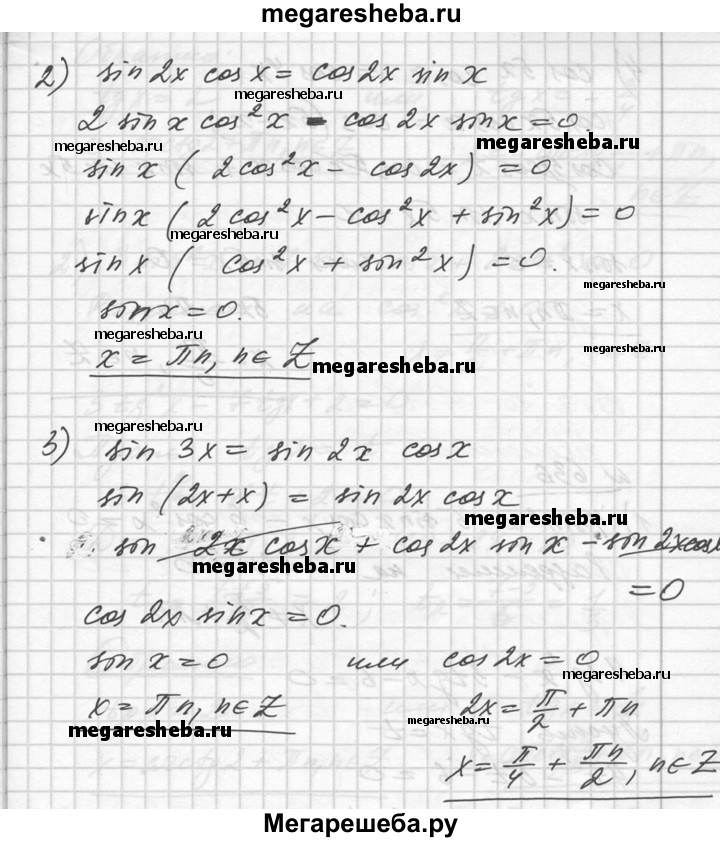 megaresheba.ru
2) sin 2x cos x = cos 2x sin x
megaresheba.ru
2 sin x cos²x - cos 2x sin x = 0.
megaresheba.ru megaresheba.ru
sin x ( 2cos²x - cos 2x) = 0
sin x ( 2cos²x - cos²x + sin²x) = 0
megaresheba.ru
sin x ( cos²x + sin²x) = 0.
megaresheba.ru
sin x = 0.
megaresheba.ru
x = πn, n∈Z
megaresheba.ru
megaresheba.ru
3) sin 3x = sin 2x cos x
sin (2x+x) = sin 2x cos x
megaresheba.ru
sin 2x cos x + cos 2x sin x - sin 2x cos
megaresheba.ru
= 0
cos 2x sin x = 0.
sin x = 0 или cos 2x = 0
megaresheba.ru
x = πn, n∈Z 2x = π/2 + πn
megaresheba.ru megaresheba.ru
x = π/4 + πn/2, n∈Z
Мегарешеба.ру